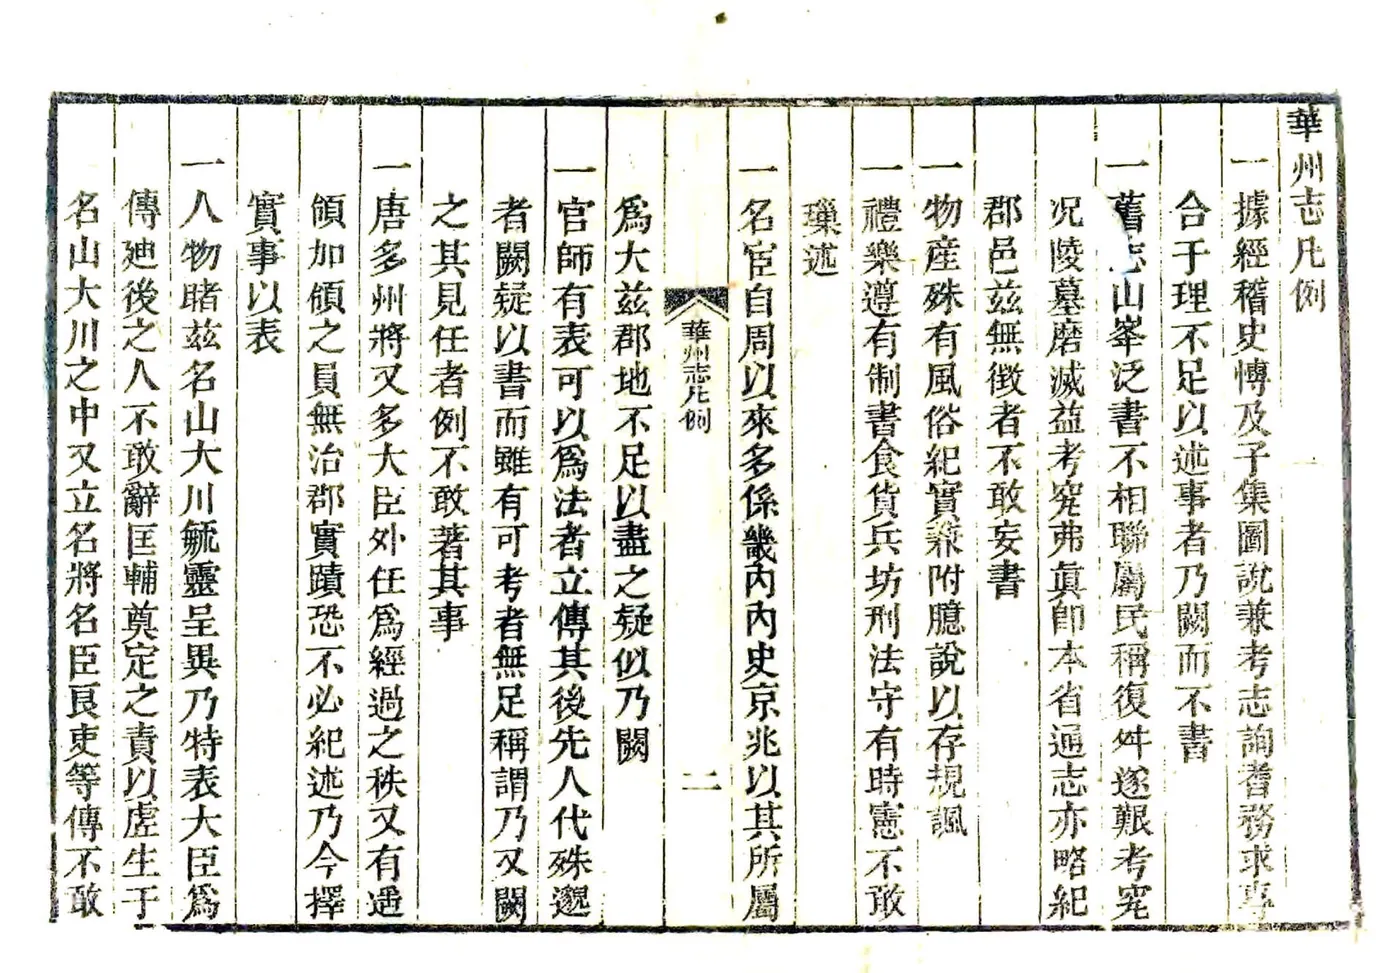 華州志凡例
一據經稽史愽及子集圖說兼考志詢耆務求事
合于理不足以述事者乃闕而不書
一舊志山峯泛書不相聯屬民稱復舛遂艱考究
况陵墓磨滅益考究弗眞卽本省通志亦略紀
郡邑茲無徴者不敢妄書
一物産殊有風俗紀實兼附臆說以存規諷
一禮樂遵有制書食貨兵坊刑法守有時憲不敢
璅述
一名宦自周以來多係畿內內史京兆以其所屬
華州志凡例 二
爲大兹郡地不足以盡之疑似乃闕
一官師有表可以爲法者立傳其後先人代殊邈
者闕疑以書而雖有可考者無足稱謂乃又闕
之其見任者例不敢著其事
一唐多州將又多大臣外任爲經過之秩又有遥
領加領之員無治郡實蹟恐不必紀述乃今擇
實事以表
一人物睹兹名山大川毓靈呈異乃特表大臣爲
傳廸後之人不敢辭匡輔奠定之責以虗生于
名山大川之中又立名將名臣良吏等傳不敢